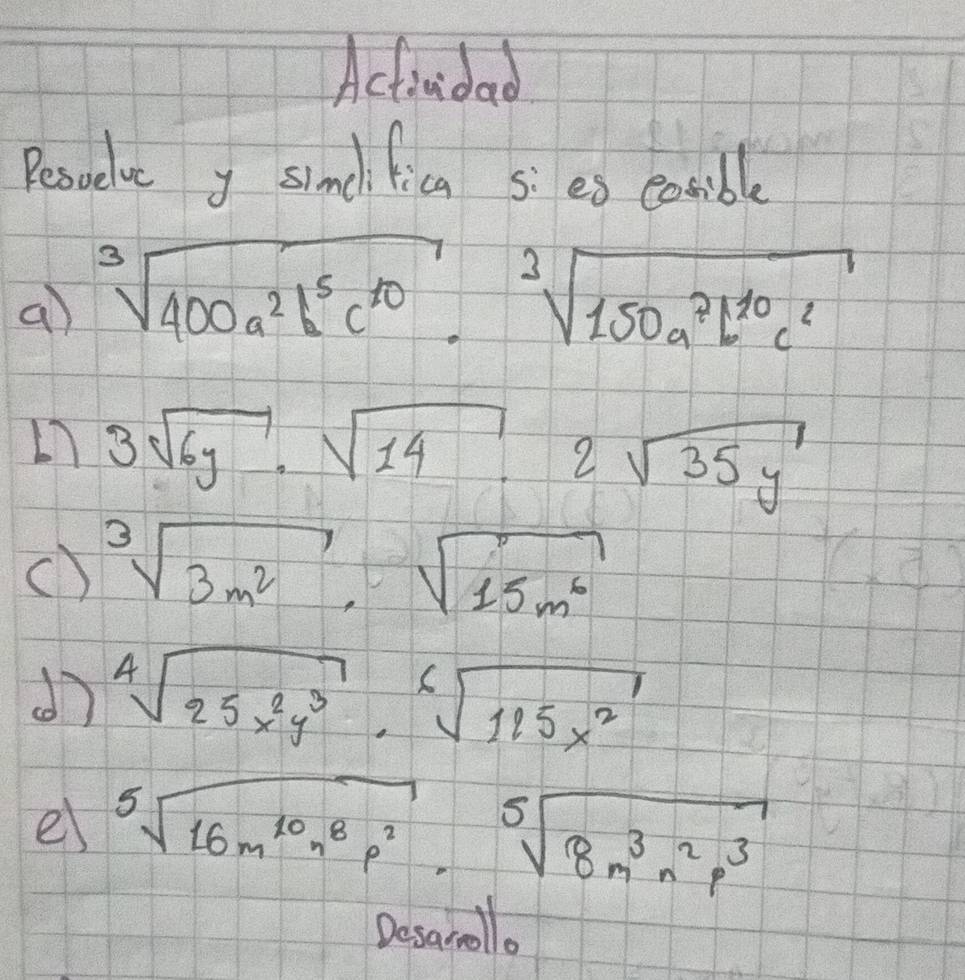 Actividad
Resuelve y simplifica si es posible
a) ∛(400a²b⁵c¹⁰) . ∛(150a⁷b¹⁰c²)
b) 3√(6y) . √14 . 2√(35y)
c) ∛(3m²) . √(15m⁶)
d) ⁴√(25x²y³) . ⁶√(125x²)
e) ⁵√(16m¹⁰n⁸p²) . ⁵√(8m³n²p³)
Desarrollo